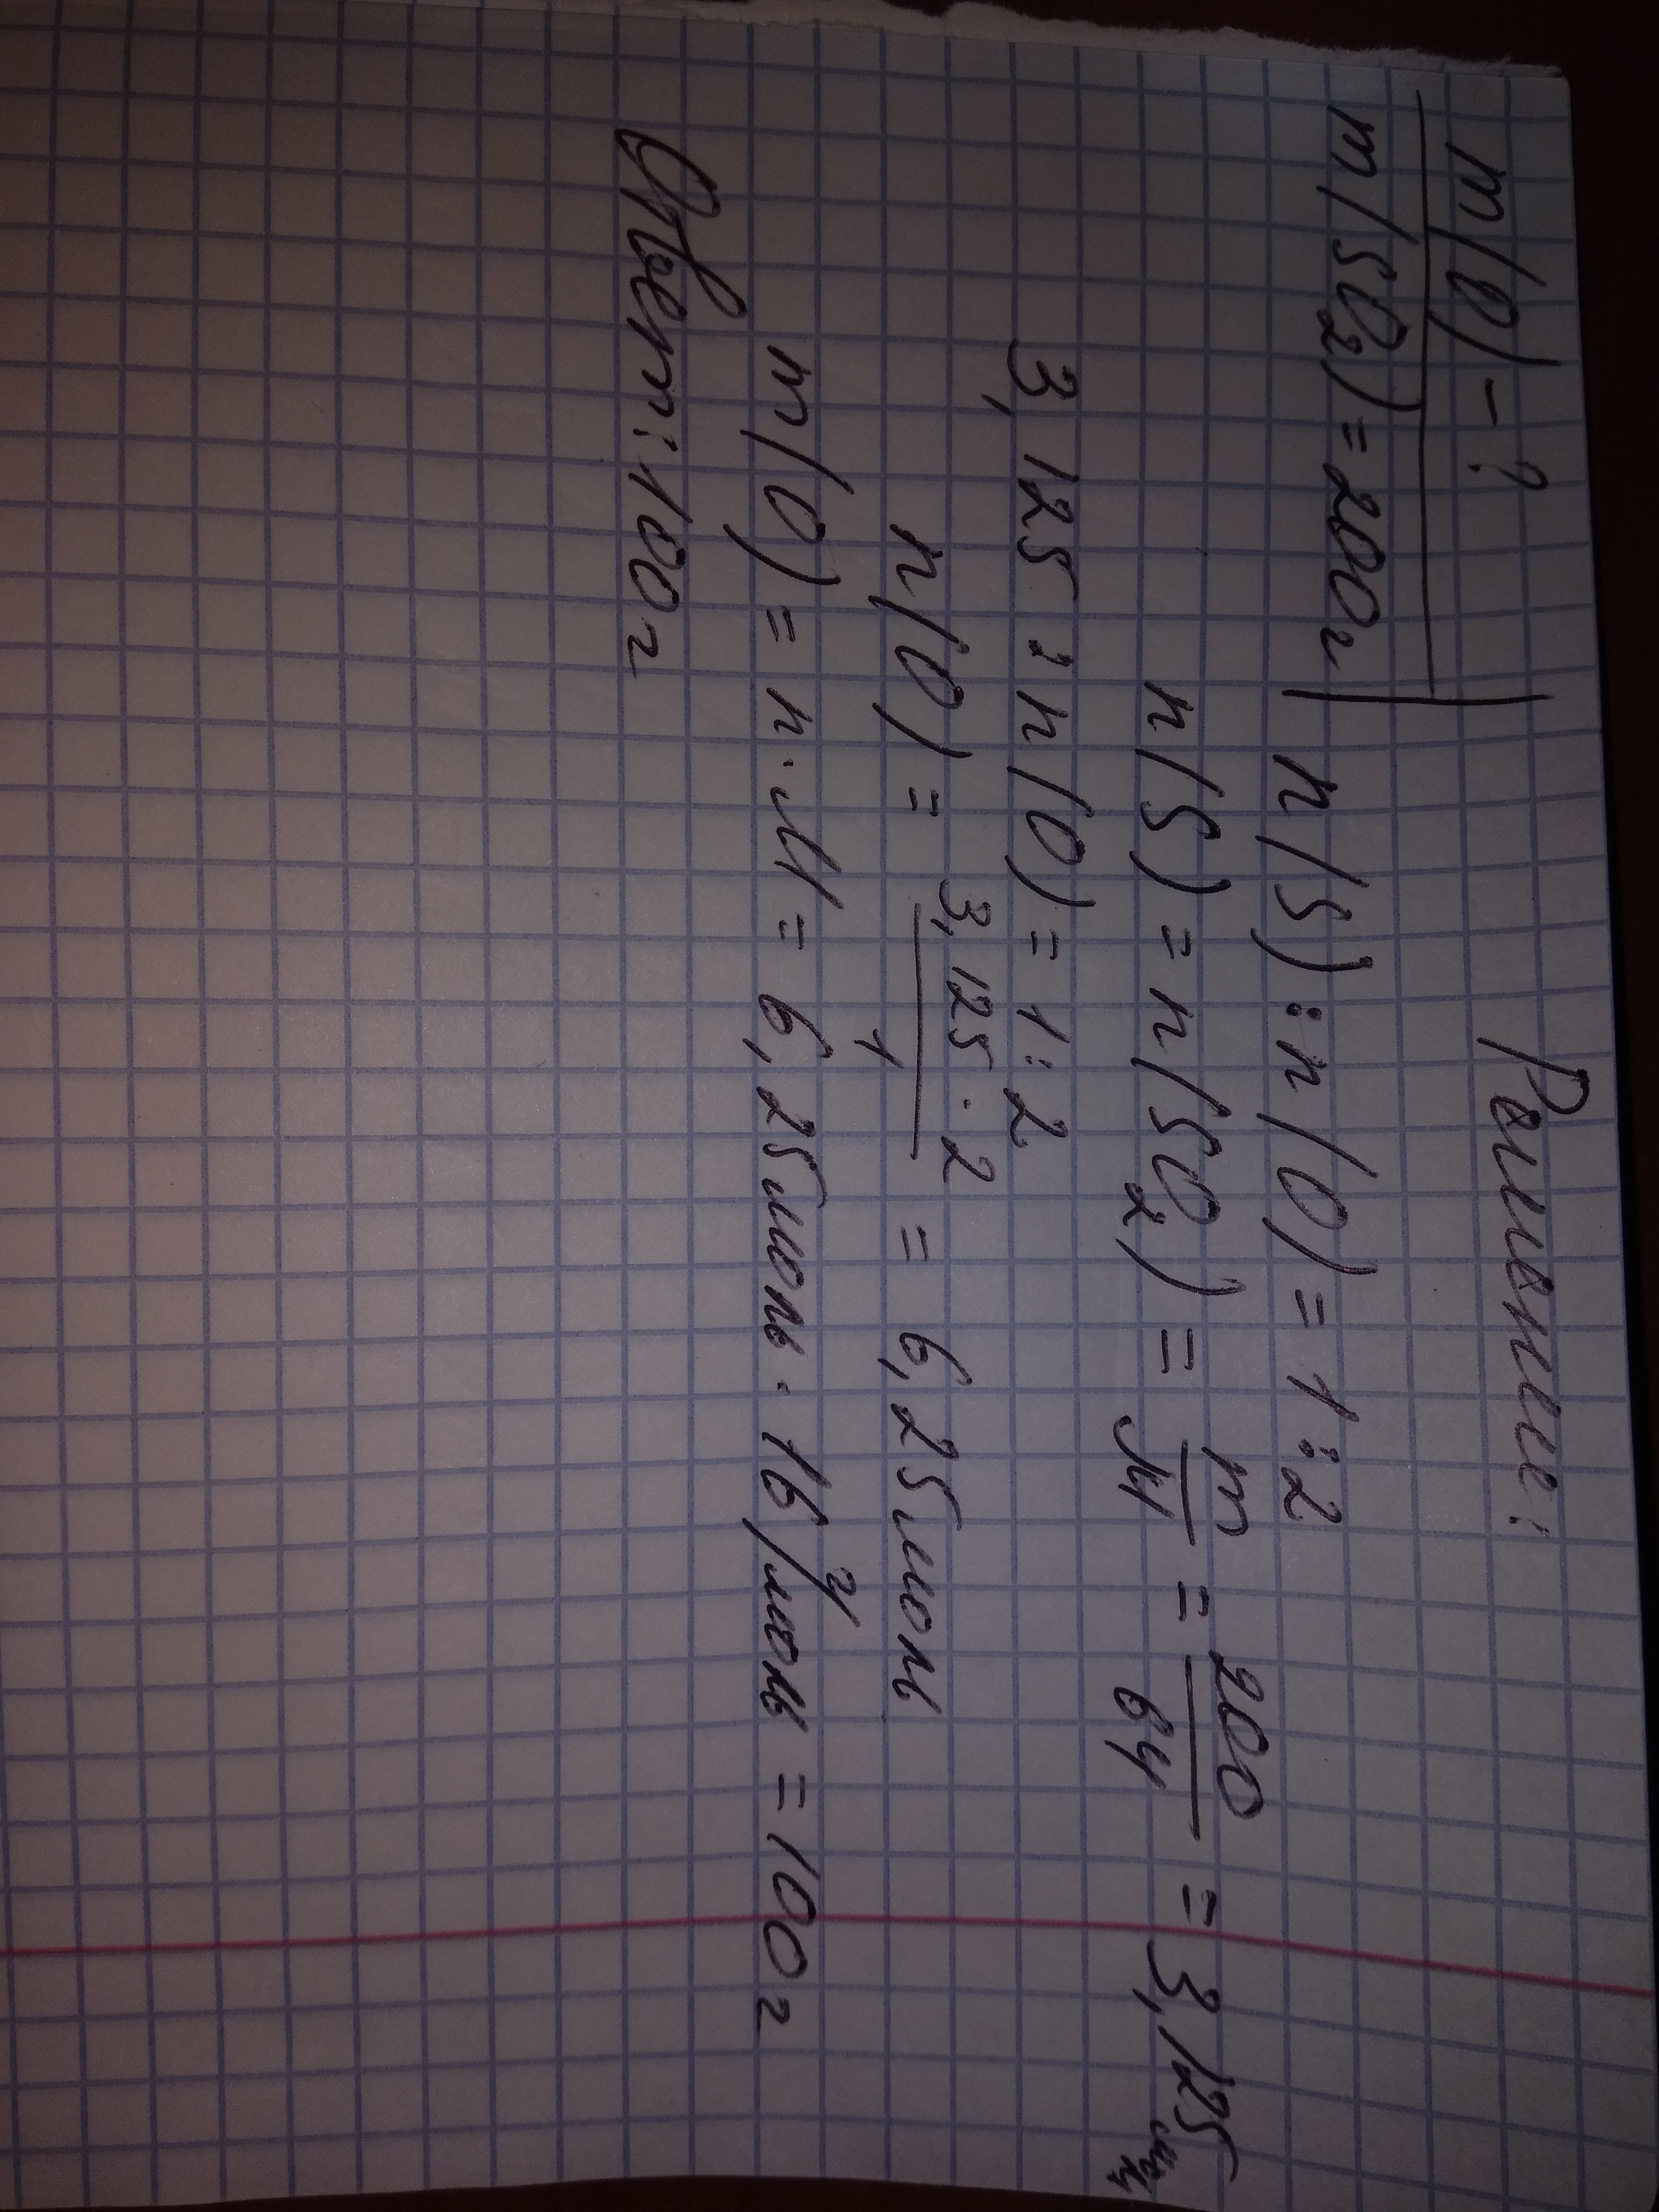 m(O) - ?
Решение:
m(SO₂) = 200г
n(S) : n(O) = 1 : 2
n(S) = n(SO₂) = m/M = 200/64 = 3,125 моль
3,125 : n(O) = 1 : 2
n(O) = 3,125 · 2/1 = 6,25 моль
m(O) = n · M = 6,25 моль · 16 г/моль = 100 г
Ответ: 100 г